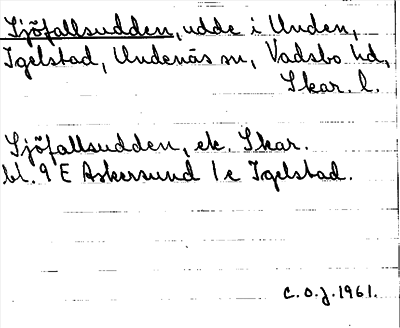 Sjöfallsudden, udde i Unden,
Igelstad, Undenäs sn, Vadsbo hd,
Skar. l.
Sjöfallsudden, ek. Skar.
bl. 9 E Askersund 1e Igelstad.
C.O.J. 1961.